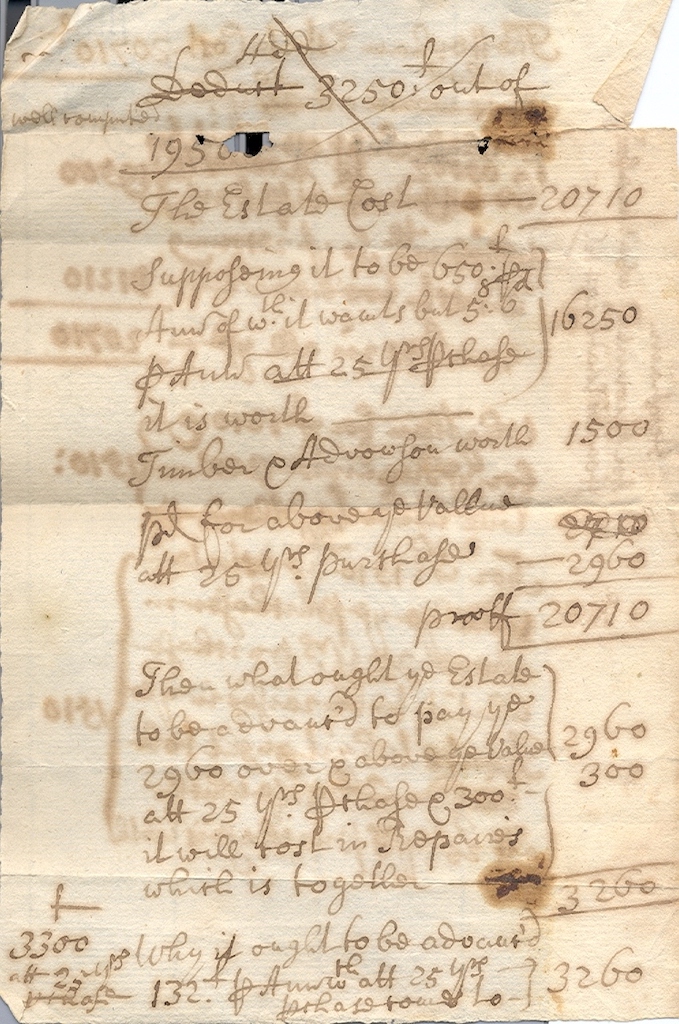 Add
Deduct 3250:£ out of
well computed
1950
The Estate Cost — 20710
Supposeing it to be 650:£
Ann̄ of wch. it wants but 5: 8: 6
16250
℔ Ann̄ att 25 yrs ℔chase
it is worth —
Timber & Advowson worth 1500
pd for above ye Vallue
att 25 yrs. purchase — 2960
prooff 20710
Then what ought ye Estate
to be advanc'd to pay ye
2960 over & above ye Value 2960
att 25 yrs. ℔chase & 300£ 300
it will cost in Repaires
which is together 3260
£
3300
att 25 yrs
℔chase
Why it ought to be advanc'd
132.£ ℔ Ann̄ wth att 25 yrs 3260
℔chase comes to